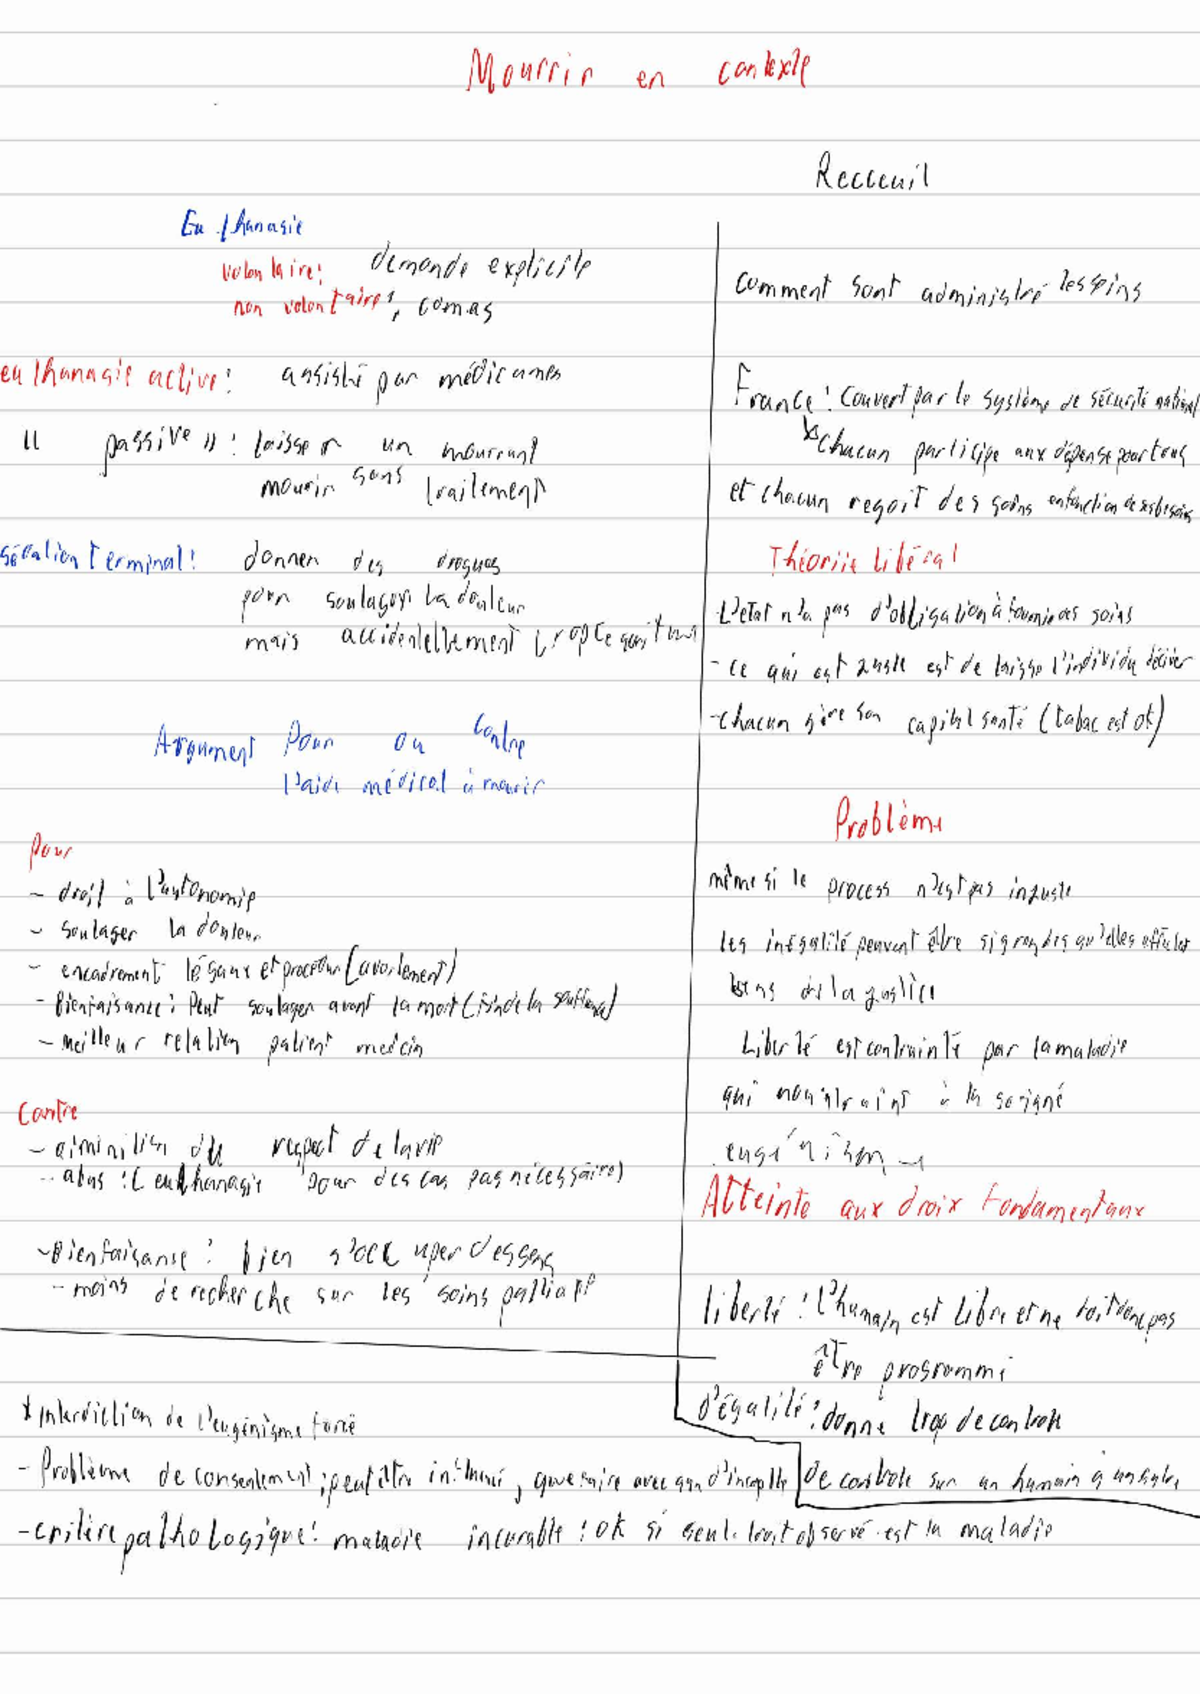 Mourrir en contexte
Euthanasie
volontaire: demande explicite
non volontaire:, comas
euthanasie active: assisté par médicames
" passive ": laisser un mourrant
mourir sans traitement
sédation terminal: donner des drogues
pour soulager la douleur
mais accidentellement trop ce qui tue
Argument Pour ou Contre
l'aide médical à mourir
Pour
- droit à l'autonomie
- soulager la douleur
- encadrement légaux et procedur (avortement)
- Bienfaisance: Peut soulager avant la mort (fin de la souffrance)
- meilleur relation patient medcin
Contre
- diminition du respect de la vie
- abus : ( euthanasie pour des cas pas nécessaire)
- Bienfaisanse: bien s'occuper d'essens
- moins de recherche sur les soins palliatif
Recceuil
comment sont administré les soins
France: Couvert par le système de sécurité national
chacun participe aux dépense pour tous
et chacun reçoit des soins en fonction de ses besoins
Théoriie libéral
L'état n'a pas d'obligation à fournir des soins
- ce qui est juste est de laisse l'individu décider
- chacun gère son capital santé (tabac est ok)
Problème
même si le process n'est pas injuste
les inégalité peuvent être si grandes qu'elles
sens de la justice
Liberté est contrainte par la maladie
qui à la soigné
Atteinte aux droix fondamentaux
liberté: l'humain est libre et ne doit donc pas
être programmé
d'égalité: donne trop de control
de controle sur un humain à un autre
* Interdiction de l'eugénisme forcé
- Problème de consentement; peut être , que faire avec
- critère pathologique: maladie incurable: ok si seul trait observé est la maladie